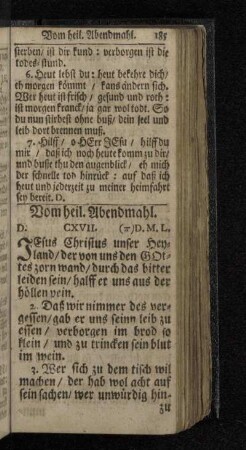 Vom heil. Abendmahl. 185
sterben/ ist dir kund: verborgen ist die
todes-stund.
6. Heut lebst du: heut bekehre dich/
eh morgen kömmt/ kans ändern sich.
Wer heut ist frisch/ gesund und roth:
ist morgen kranck/ ja gar wol todt. So
du nun stirbest ohne buß/ dein seel und
leib dort brennen muß.
7. Hilff/ o HErr JEsu/ hilff du
mir/ daß ich noch heute komm zu dir/
und busse thu den augenblick/ eh mich
der schnelle tod hinrück: auf daß ich
heut und jederzeit zu meiner heimfahrt
sey bereit. D.
Vom heil. Abendmahl.
D. CXVII. D. M. L.
JEsus Christus unser Hey-
land/ der von uns den GOt-
tes zorn wand/ durch das bitter
leiden sein/ halff er uns aus der
höllen pein.
2. Daß wir nimmer des ver-
gessen/ gab er uns seinn leib zu
essen/ verborgen im brod so
klein/ und zu trincken sein blut
im wein.
3. Wer sich zu dem tisch wil
machen/ der hab wol acht auf
sein sachen/ wer unwürdig hin-
zu